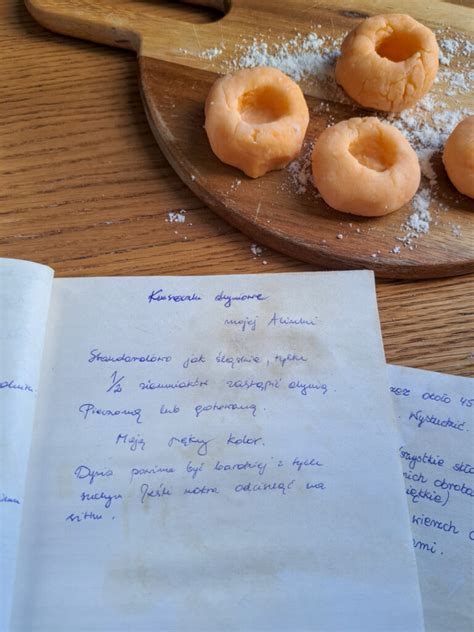 Kluseczki dyniowe
mojej Alinki
Standardowo jak śląskie, tylko
1/2 ziemniaków zastąpić dynią.
Pieczoną lub gotowaną.
Mają piękny kolor.
Dynia powinna być bardziej z tych
suchych. Jeśli mokra odcisnąć na
sitku.
oraz około 45
Wystudzić.
wszystkie skł
nich obrota
miękkie)